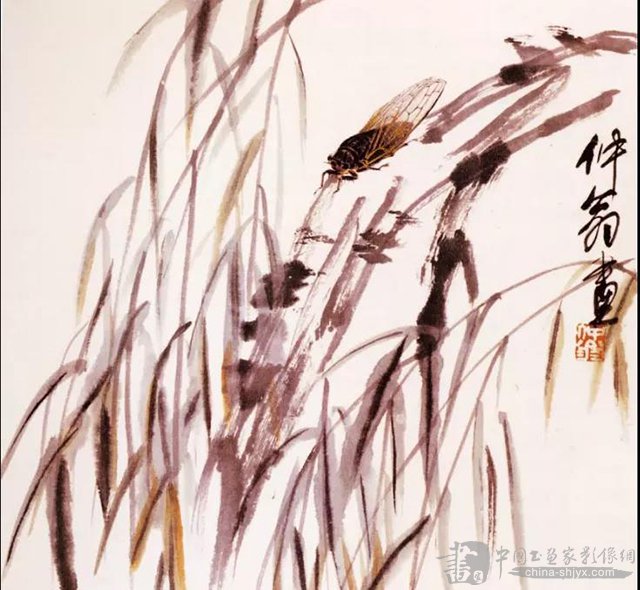 仲翁畫
中国书画家影像網
china-shjyx.com